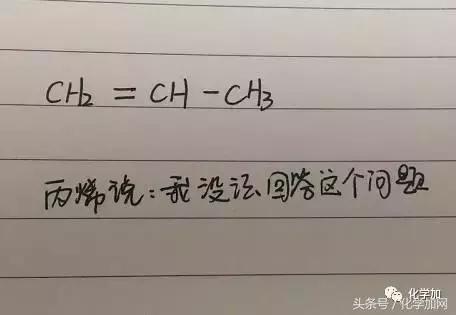 CH₂ = CH - CH₃
丙烯说：我没法回答这个问题
化学加
头条号/化学加网